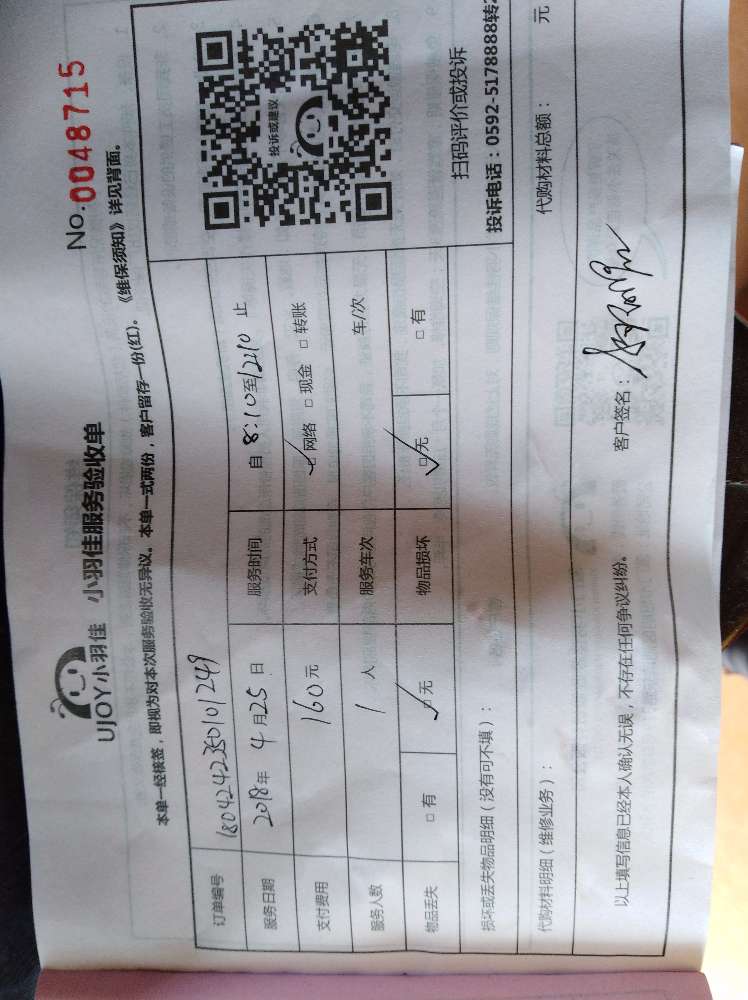 UJOY小羽佳 小羽佳服务验收单
No.0048715
本单一经核签，即视为对本次服务验收无异议。本单一式两份，客户留存一份(红)。《维保须知》详见背面。
订单编号 1804242350101249
服务日期 2018年 4月25日 服务时间 自 8:10至12:10 止
支付费用 160元 支付方式 ☑网络 □现金 □转账
服务人数 1 人 服务车次 车/次
物品丢失 □有 ☑无 物品损坏 ☑无 □有
投诉或建议
扫码评价或投诉
投诉电话：0592-5178888转2
损坏或丢失物品明细（没有可不填）：
代购材料明细（维修业务）： 代购材料总额： 元
以上填写信息已经本人确认无误，不存在任何争议纠纷。 客户签名：